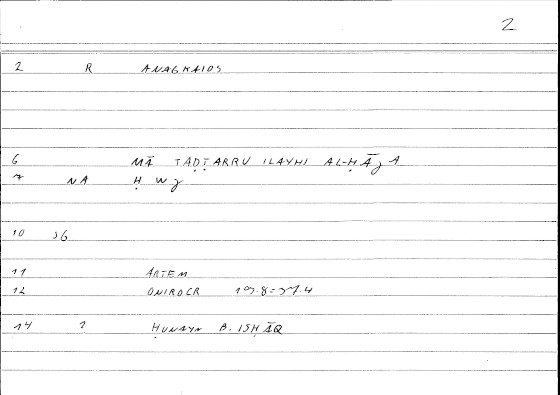 2
2 R ANAGKAIOS
6 MĀ TAḌṬARRU ILAYHI AL-ḤĀǧA
7 NA Ḥ W ǧ
10 JG
11 ARTEM
12 ONIROCR
14 1 ḤUNAYN B. ISḤĀQ